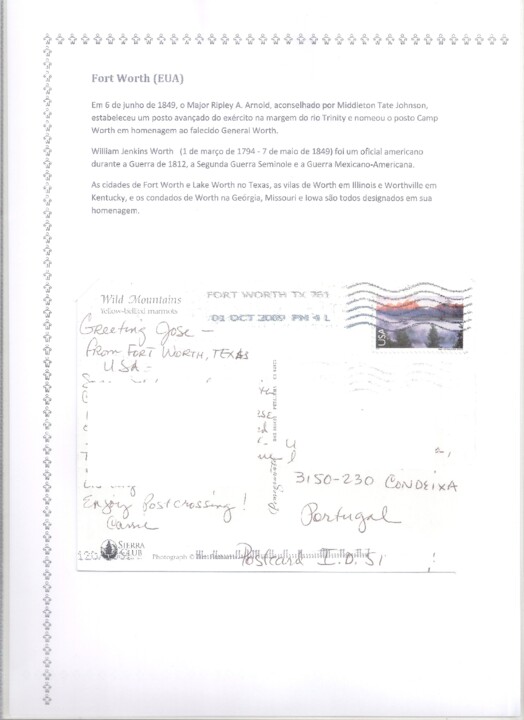 Fort Worth (EUA)
Em 6 de junho de 1849, o Major Ripley A. Arnold, aconselhado por Middleton Tate Johnson,
estabeleceu um posto avançado do exército na margem do rio Trinity e nomeou o posto Camp
Worth em homenagem ao falecido General Worth.
William Jenkins Worth (1 de março de 1794 - 7 de maio de 1849) foi um oficial americano
durante a Guerra de 1812, a Segunda Guerra Seminole e a Guerra Mexicano-Americana.
As cidades de Fort Worth e Lake Worth no Texas, as vilas de Worth em Illinois e Worthville em
Kentucky, e os condados de Worth na Geórgia, Missouri e Iowa são todos designados em sua
homenagem.
Wild Mountains
Yellow-bellied marmots
FORT WORTH TX 761
01 OCT 2009 PM 4 L
USA
Greeting Jose -
From FORT WORTH, TEXAS
USA -
Enjoy Postcrossing!
3150-230 CONDEIXA
Portugal
SIERRA
CLUB
Photograph ©
Postcard I.D. 51